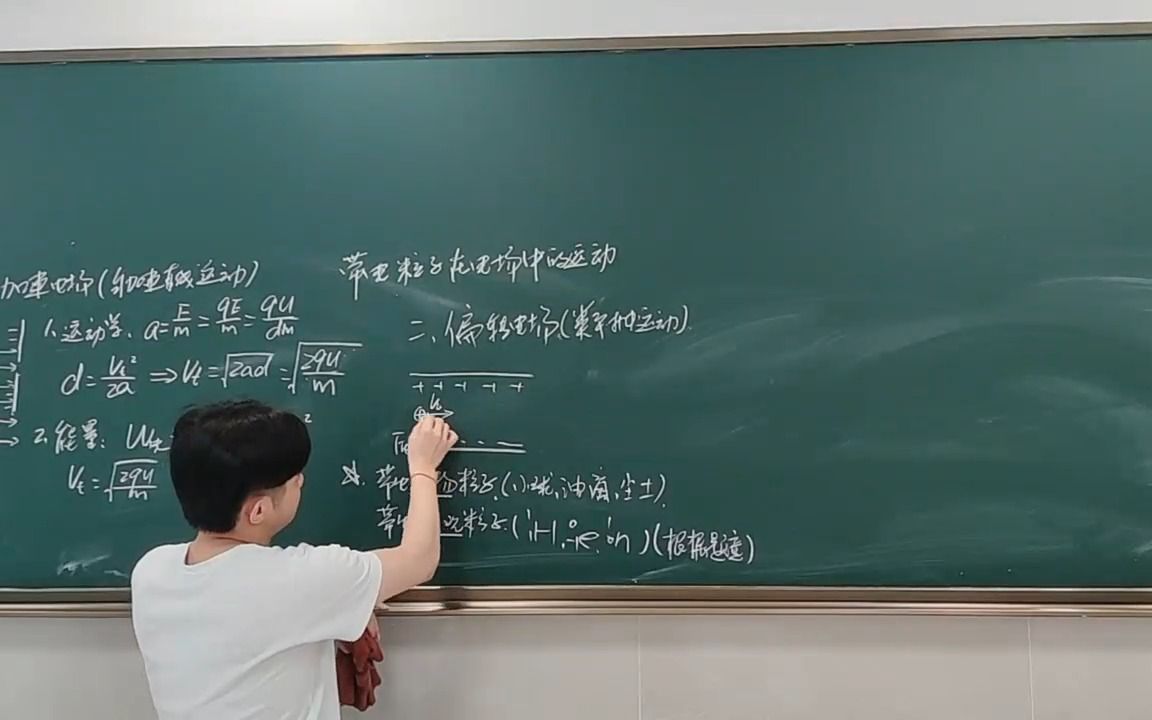 带电粒子在电场中的运动
加速电场(匀加速直线运动)
1.运动学: a=E/m=qE/m=qU/dm
d=Vt²/2a ⇒ Vt=√2ad=√(2qU/m)
2.能量: U
Vt=√(2qU/m)
二、偏转电场(类平抛运动)
+ + + + +
V₀
⊕
带电 粒子(小球,油滴,尘土)
带 粒子(¹₁H,⁰₋₁e,¹₀n)(根据题意)